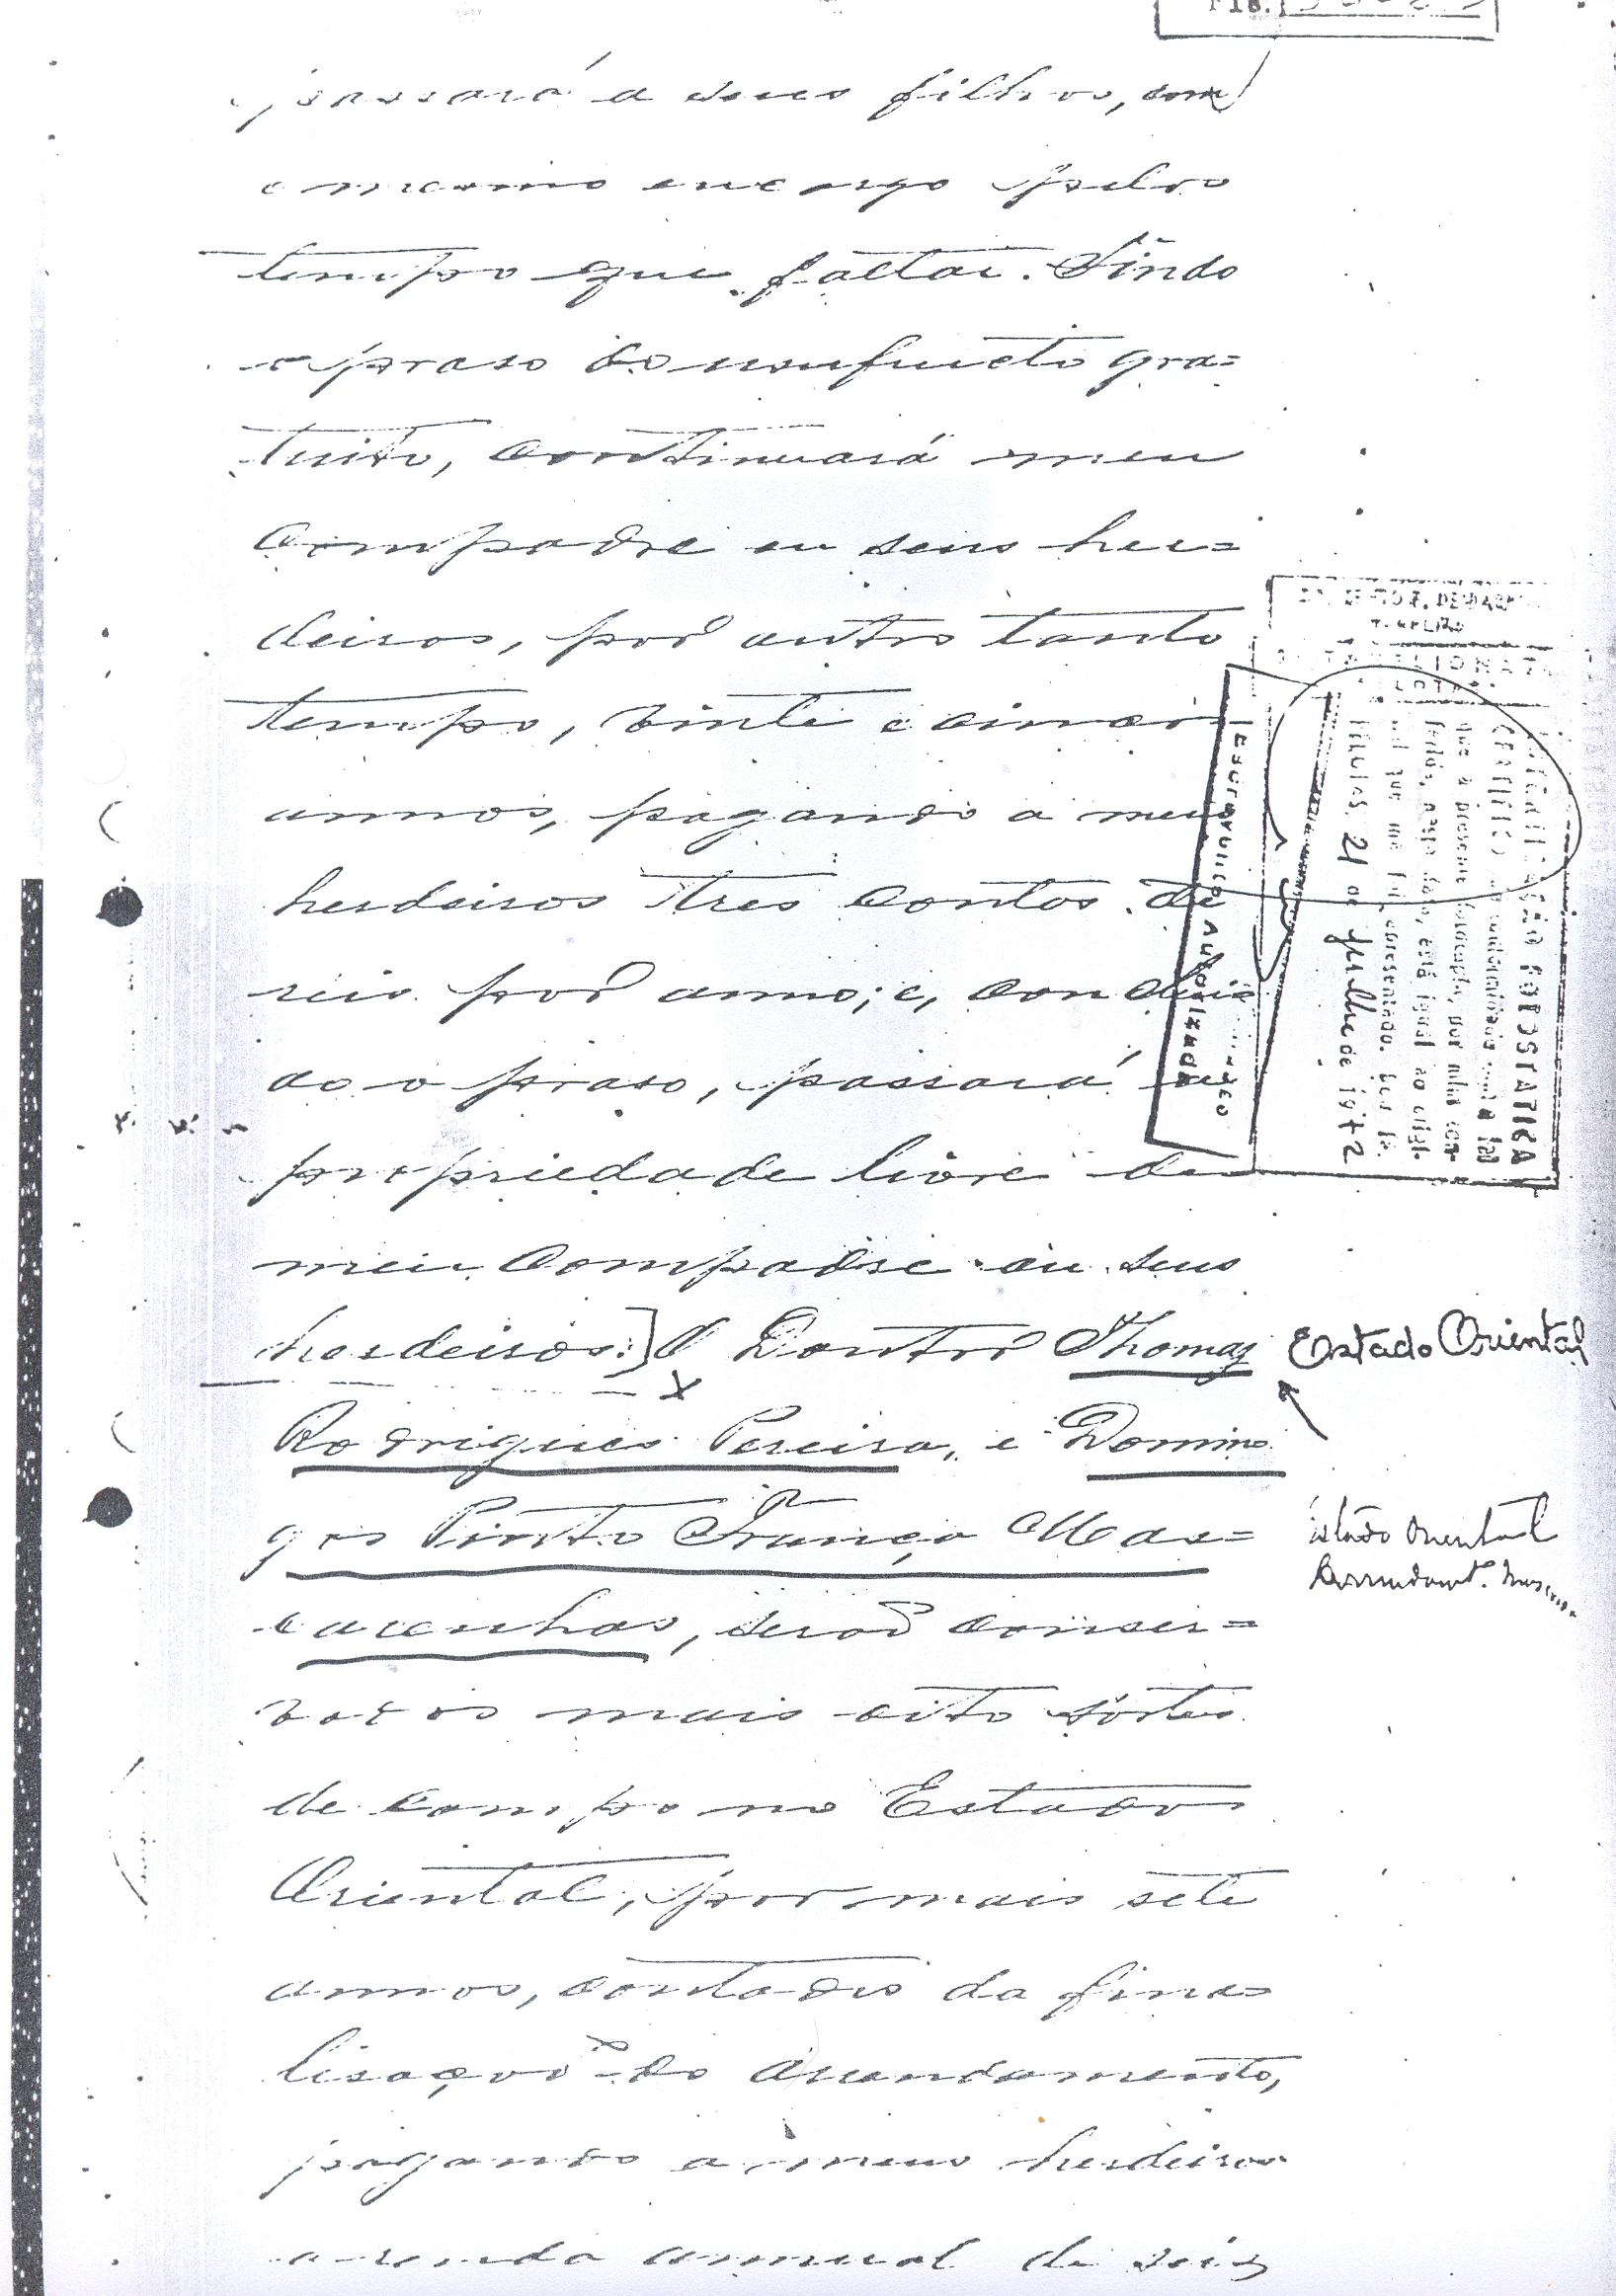 Fls.
passará a seus filhos, com
o mesmo encargo pelo
tempo que faltar. Findo
o praso do usufructo gra=
tuito, continuará meu
compadre ou seus her=
deiros, por outro tanto
tempo, vinte e cinco
annos, pagando a meus
herdeiros tres contos de
reis por anno; e, conclui
do o praso, passará a
propriedade livre de
meu compadre ou seus
herdeiros.] O Doutor Thomaz
Rodrigues Pereira, e Domin
gos Pinto França Mas=
carenhas, serão conser=
vados mais oito sortes
de campo no Estado
Oriental, por mais sete
annos, contados da fina=
lisação do arrendamento,
pagando a meus herdeiros
a renda annual de seis
Estado Oriental
Estado Oriental
TABELIONATO
AUTENTICAÇÃO FOTOSTATICA
que a presente fotocopia, por mim con-
feridas, nesta data, está igual ao origi-
nal que me foi apresentado. Dou fé.
Pelotas, 21 de Julho de 1972
ESCREVENTE AUTORIZADA